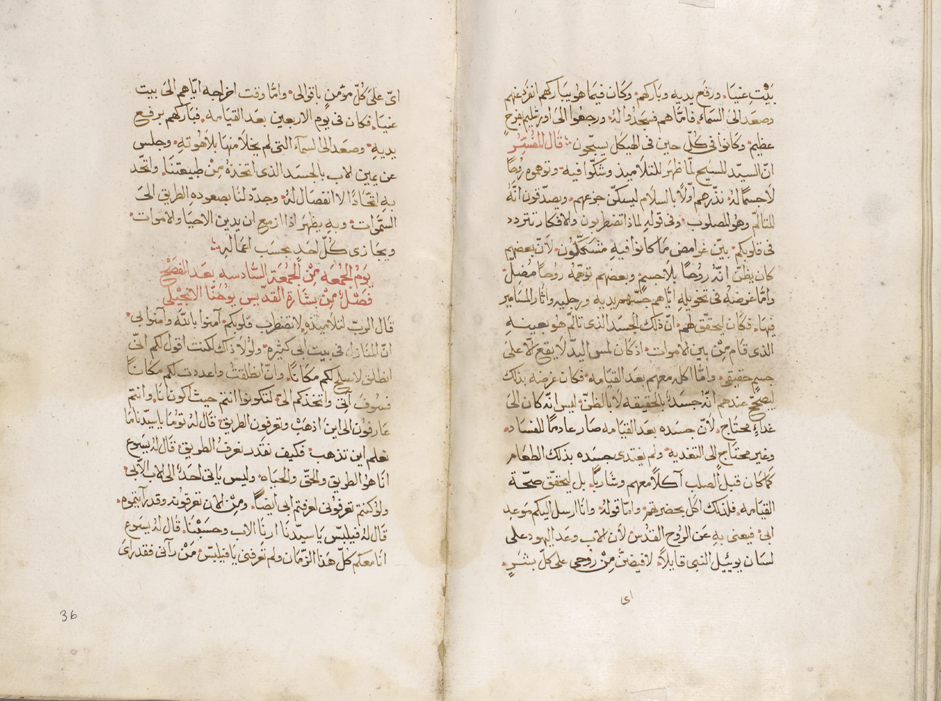 بيْت عنيا، ورفع يديه وباركهم، وكان فيما هو يباركهم انفرد عنهم
وصعد الى السماء، فاما هم فسجدوا له، ورجعوا الى اورشليم بفرح
عظيم، وكانوا في كل حين في الهيكل يسبحون، قال المفسّر
انّ السيّد المسيح لما ظهر للتلاميذ وشكّوا فيه، وتوهموه روحًا
لا جسمًا له، بدرهم اولًا بالسلام ليسكّن جوعهم، ويصدّقون انّه
المتالّم وهو المصلوب، وفي قوله لماذا تضطربون والافكار تتردد
في قلوبكم، بيّن غوامض ما كانوا فيه متشكّكون، لانّ بعضهم
كان يظنّ انّه روحًا بلا جسم، وبعضهم توهّمه روحًا مُضِلّ
وامّا غرضه في تخويله ايّاهم جسّهم يديه ورجليه واثار المسامير
فيها، فكان ليحقّق لهم، انّ ذلك الجسد الذي تالّم هو بعينه
الذي قام من بين الاموات، اذ كان لمس اليد لا يقع الّا على
جسم حقيقي، وامّا اكله معهم بعد القيامه، فكان غرضه بذلك
ليصحّ عندهم انّه جسدًا بالحقيقه لا بالظنّ، ليس انّه كان الى
غداءٍ محتاج، لانّ جسده بعد القيامه صار عادمًا للفساد،
وغير محتاج الى التغديه، ولم يغتدي جسده بذلك الطعام
كما كان قبل الصلب آكلًا معهم وشاربًا، بل ليحقّق صحّة
القيامه، فلذلك اكل بحضرتهم، وامّا قوله، وانا ارسل اليكم موعد
ابي، فيعني به عن الروح القدس، لان الاب وعد اليهود على
لسان يوييل النبي قايلًا، لافيضنّ من روحي على كلّ بشرٍ،
اي
اي على كلّ مؤمن باقوالي، وامّا وقت اخراجه ايّاهم الى بيت
عنيا، فكان في يوم الاربعين بعد القيامه، فباركهم برفع
يديهِ، وصعد الى السماء التي لم يخلا منها بلاهوته، وجلس
عن يمين الاب بالجسد الذي اتّخذه من طبيعتنا، واتّحد
به اتّحادًا لا انفصال له، وجدد لنا بصعوده الطريق الى
السموات، وبه يظهر اذا ازمع ان يدين الاحيا والاموات،
ويجازي كلّ احدٍ بحسب اعماله،
يوم الجمعه من الجمعة السّادسه بعد الفصح
فصل من بشارة القديس يوحنّا الانجيلي
قال الرب لتلاميذه، لا تضطرب قلوبكم، آمنوا بالله وآمنوا بي،
انّ المنازل في بيت ابي كثيره، ولولا ذلك لكنت اقول لكم انّي
انطلق لاعدّ لكم مكانًا، وان انطلقت واعددت لكم مكانًا
فسوف آتي واتّخذكم اليّ، لتكونوا انتم حيث اكون انا، وانتم
عارفون الى اين اذهب، وتعرفون الطريق، قال له توما يا سيّدنا ما
نعلم اين تذهب، فكيف نقدر نعرف الطريق، قال له يسوع
انا هو الطريق والحقّ والحياه، وليس ياتي احد الى الاب الّا بي،
ولو كنتم تعرفوني لعرفتم ابي ايضًا، ومن الان تعرفونه وقد رايتموه،
قال له فيلبّس يا سيّدنا ارنا الاب وحسبنا، قال له يسوع
انا معكم كلّ هذا الزمان ولم تعرفني يا فيلبّس، من رآني فقد رى
36